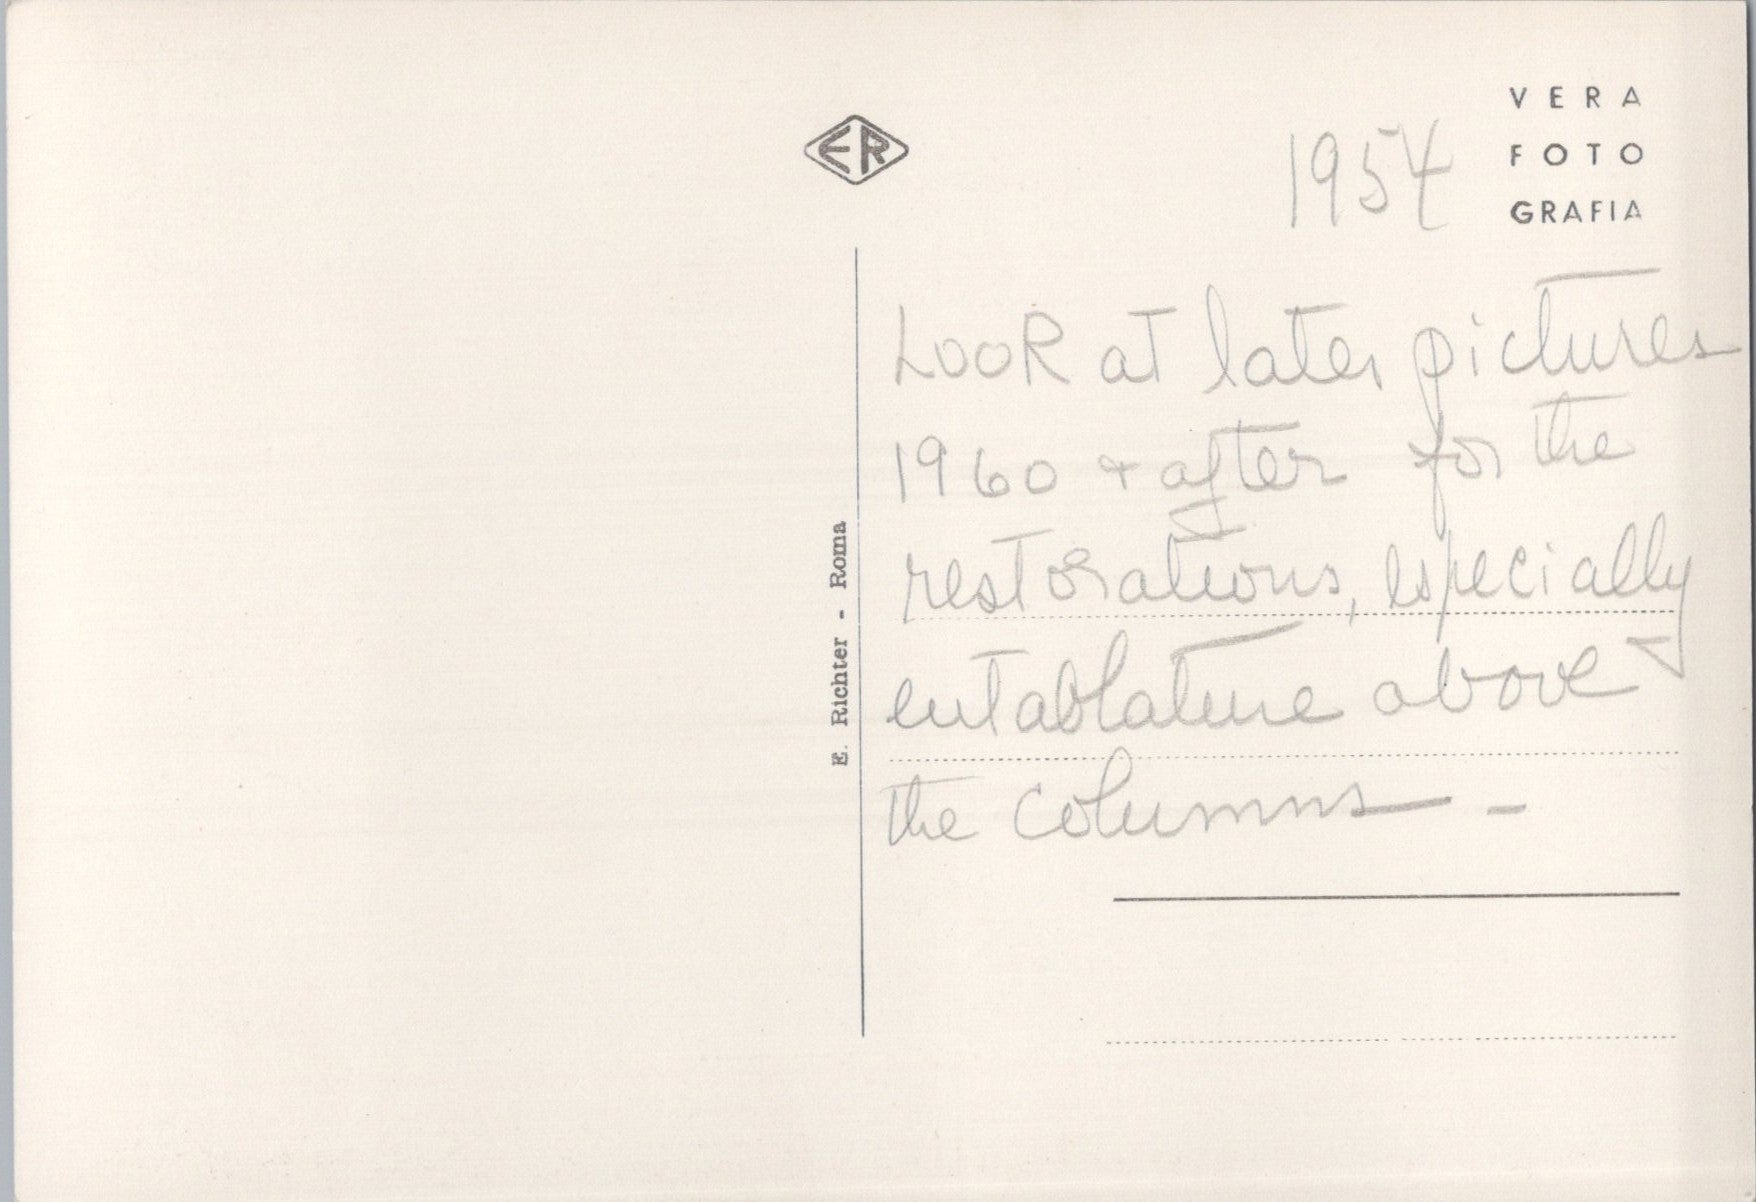 ER
VERA
FOTO
GRAFIA
1954
LOOK at later pictures
1960 + after for the
restorations, especially
entablature above
the columns –
E. Richter - Roma